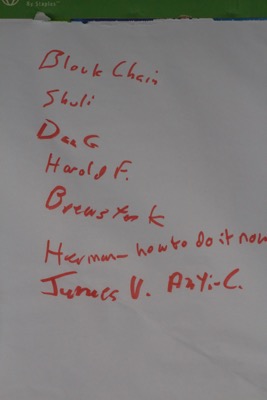 By Staples™
Block Chain
Shuli
Dan G
Harold F.
Brewster K
Herman - how to do it now
James V. Anti-C.